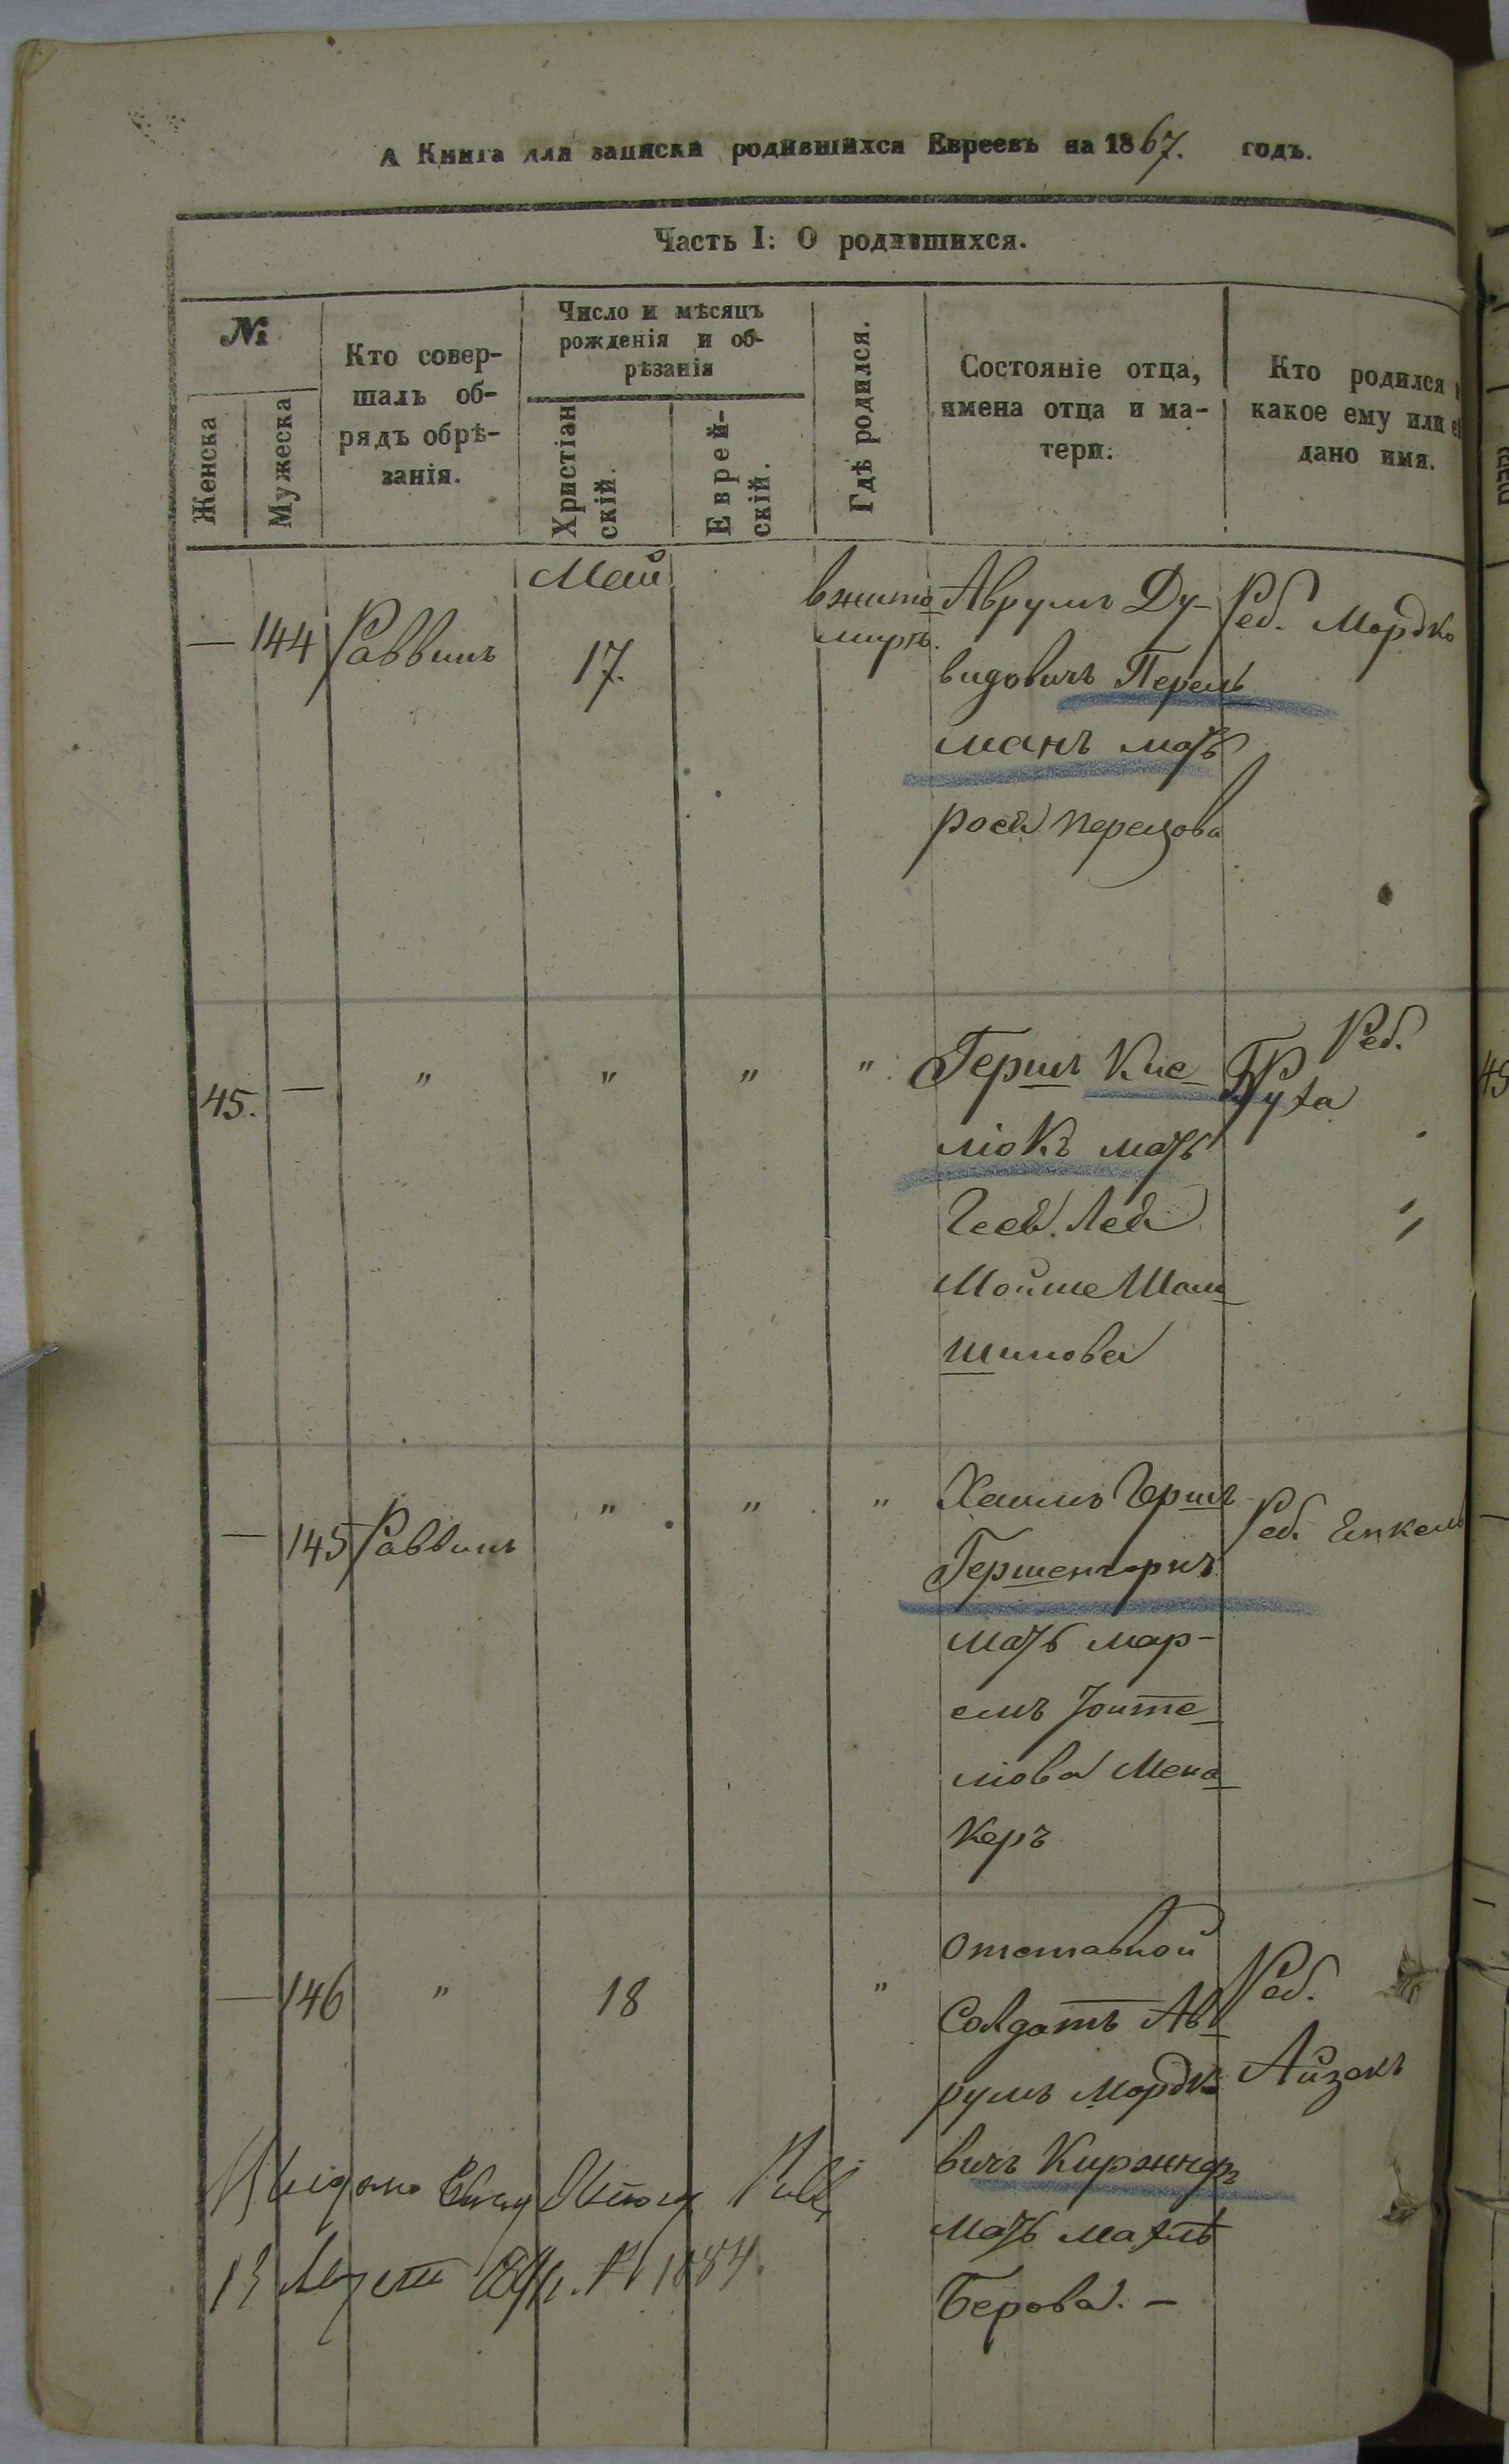 А Книга для записки родившихся Евреевъ на 1867. годъ.
Часть I: О родившихся.
№
Женска
Мужеска
Кто совер-
шалъ об-
рядъ обрѣ-
занія.
Число и мѣсяцъ
рожденія и об-
рѣзанія
Христіан
скій.
Еврей-
скій.
Гдѣ родился.
Состояніе отца,
имена отца и ма-
тери.
Кто родился
какое ему или
дано имя.
— 144 Раввинъ
Май
17.
в жито
миръ.
Аврумъ Ду-
видовичъ Перель
манъ мать
Перецова
Реб. Мордко
45. — " " " "
Гершъ Кис-
люкъ мать
Лея
Мойше
шимова
Реб.
Руха
— 145 Раввинъ " " "
Хаимъ Гершъ
Гершенгорнъ
мать мар-
емъ
лиова Мена
керъ
Реб. Янкель
— 146 " 18 "
отставной
Солдатъ Ав
румъ Мордко
вичъ Киржнеръ
мать махлѣ
Берова. —
Реб.
Айзекъ
№ 1884.